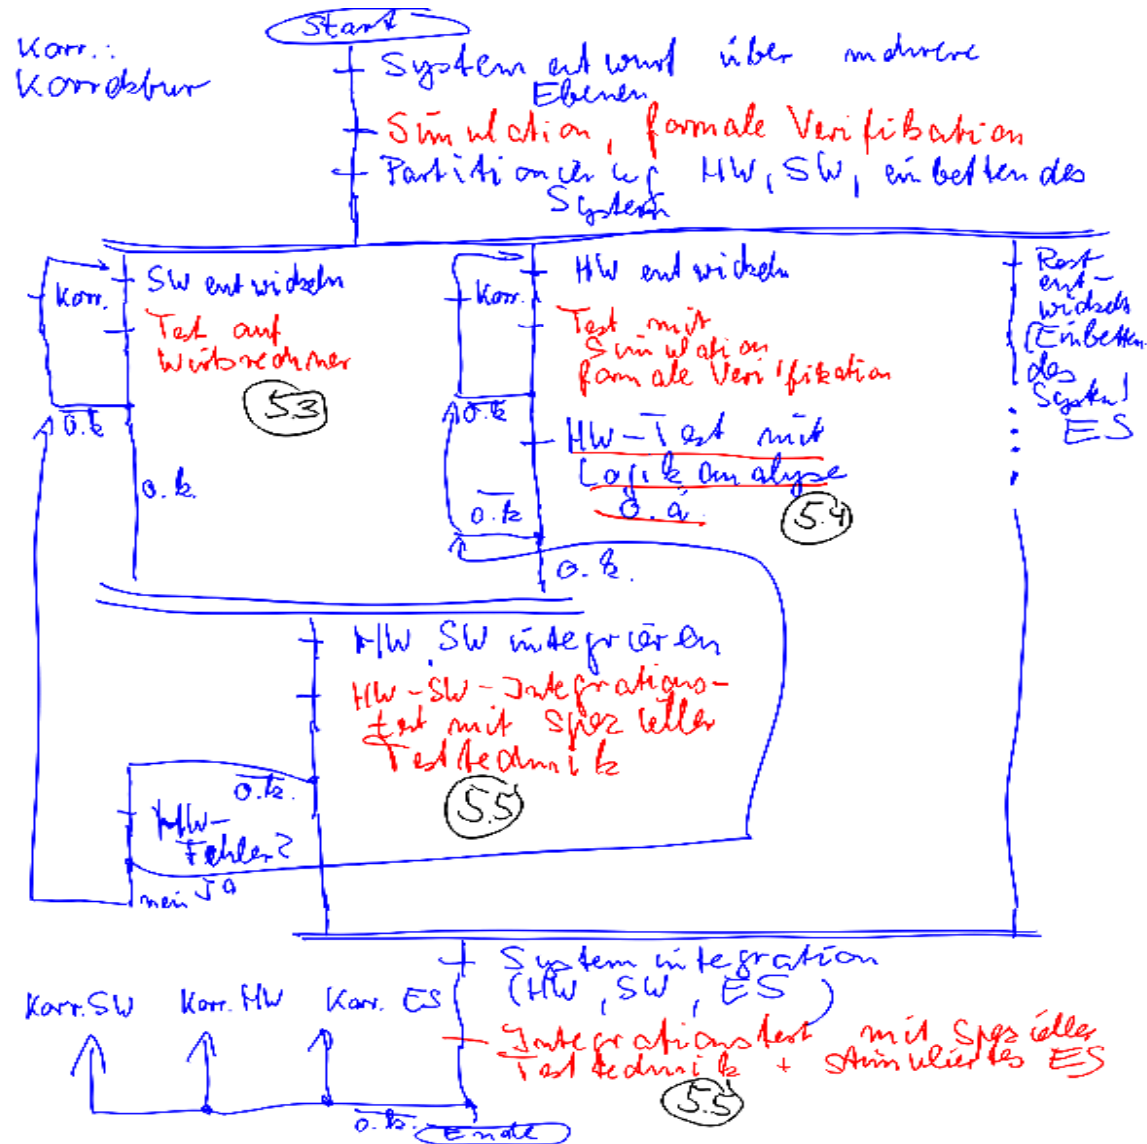 Start
Korr.:
Korrektur
System entwurf über mehrere
Ebenen
Simulation, formale Verifikation
Partitionierung HW, SW, einbettendes
System
Korr.
SW entwickeln
Test auf
Wirtsrechner
5.3
o.k
o.k.
Korr.
HW entwickeln
Test mit
Simulation
formale Verifikation
o.k
HW-Test mit
Logikanalyse
o.ä.
5.4
o.k
o.k.
Rest
ent-
wickeln
(Einbetten-
des
System)
ES
HW, SW integrieren
HW-SW-Integrations-
test mit spezieller
Testtechnik
5.5
o.k.
HW-
Fehler?
nein Ja
System integration
(HW, SW, ES)
Korr. SW Korr. HW Korr. ES
Integrationstest mit spezieller
Testtechnik + stimuliertes ES
5.5
o.k.
Ende